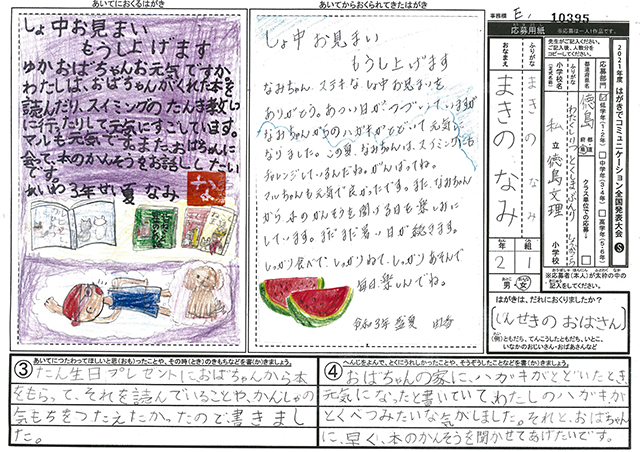 あいてにおくるはがき
しょ中お見まい
もうし上げます
ゆかおばちゃんお元気ですか。
わたしは、おばちゃんがくれた本を
読んだり、スイミングのたんき教しつ
に行ったりして元気にすごしています。
マルも元気です。また、おばちゃんに
会って、本のかんそうをお話ししたい
です。
れいわ3年せい夏 なみ
な
あいてからおくられてきたはがき
しょ中お見まい
もうし上げます
なみちゃん、ステキなしょ中お見まいを
ありがとう。あつい日がつづいていますが
なみちゃんからのハガキがとどいて元気に
なりました。この夏、なみちゃんは、スイミングにも
チャレンジしているんだね。がんばってね。
マルちゃんも元気で良かったです。また、なみちゃん
から本のかんそうを聞ける日を楽しみに
しています。まだまだ暑い日が続きます。
しっかり食べて、しっかりねて、しっかりあそんで
毎日楽しんでね。
令和3年 盛夏
事務欄
E
10395
応募用紙
※応募は一人1作品です。
先生がご記入ください。
ご記入後、人数分を
コピーしてください。
2021年度 はがきでコミュニケーション全国発表大会 S
応募部門
低学年(1・2年)
中学年(3・4年)
高学年(5・6年)
都道府県名
徳島
都 道 府 県
クラス単位での応募
ふりがな
小学校名
(正式名称)
私 立 徳島文理 小学校
ふりがな
まきの なみ
おなまえ
まきの なみ
2年
1組
男 女
※応募者(本人)が太枠の中の
記入をしてください。
はがきは、だれにおくりましたか？
(しんせきのおばさん)
(例)ともだち、てんこうしたともだち、いとこ、
いなかのおじいさん・おばあさんなど
あいてにつたわってほしいと思(おも)ったことや、その時(とき)のきもちなどを書(か)きましょう。
③たん生日プレゼントに、おばちゃんから本
をもらって、それを読んでいることや、かんしゃの
気もちをつたえたかったので、書きまし
た。
へんじをよんで、とくにうれしかったことや、そうぞうしたことなどを書(か)きましょう。
④おばちゃんの家に、ハガキがとどいたとき、
元気になったと書いていて、わたしのハガキが
とくべつみたいな気がしました。それと、おばちゃん
に、早く、本のかんそうを聞かせてあげたいです。